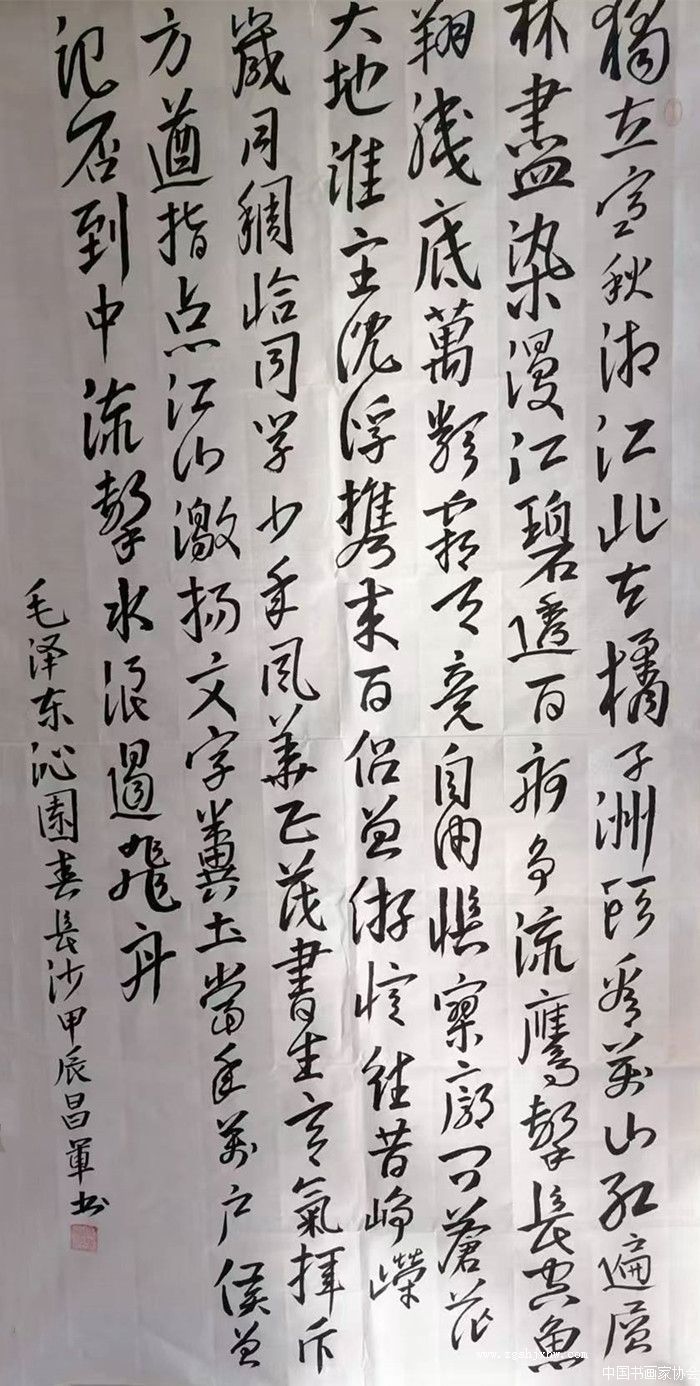 獨立寒秋湘江北去橘子洲頭看萬山紅遍層
林盡染漫江碧透百舸争流鷹擊長空魚
翔淺底萬類霜天竞自由悵寥廓問蒼茫
大地誰主沉浮攜来百侣曾游憶往昔崢嶸
歲月稠恰同学少年風華正茂書生意氣揮斥
方遒指点江山激扬文字糞土當年萬户侯曾
記否到中流擊水浪遏飛舟
毛泽东沁園春長沙甲辰昌軍书
www.zgshjxhw.com
中国书画家协会